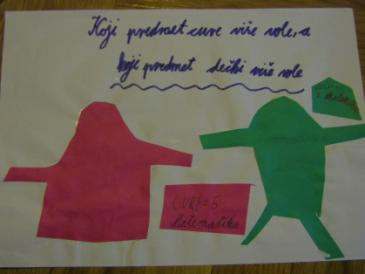 Koji predmet cure više vole, a
koji predmet dečki više vole
CURE = 5
Matematika